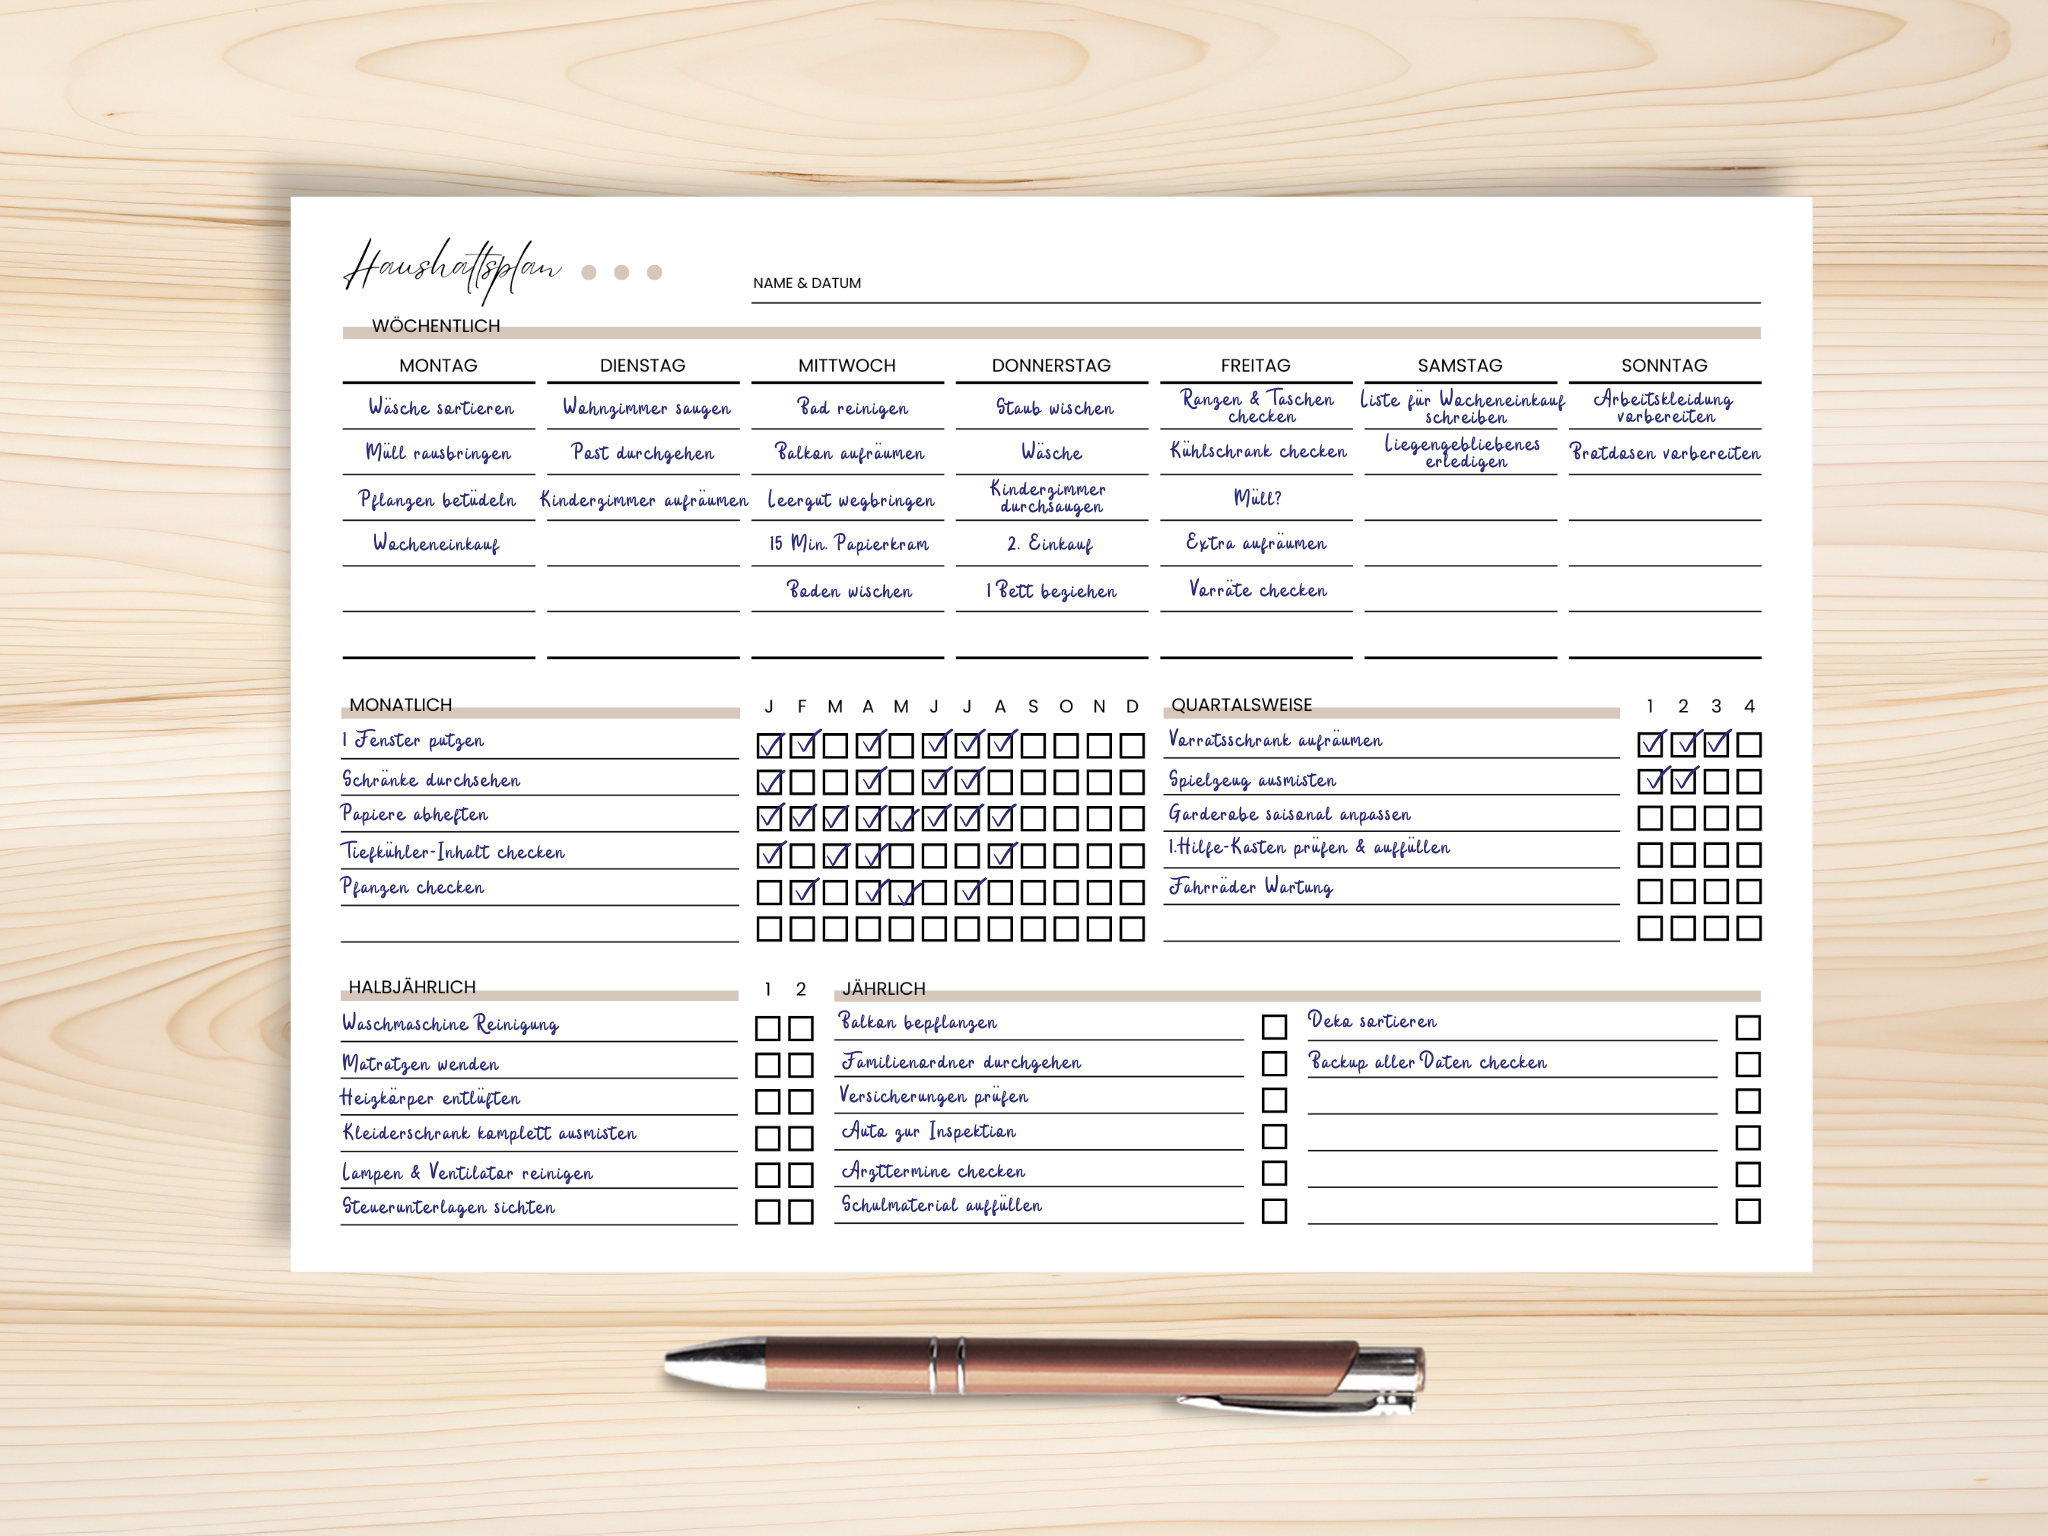 Haushaltsplan
NAME & DATUM
WÖCHENTLICH
MONTAG DIENSTAG MITTWOCH DONNERSTAG FREITAG SAMSTAG SONNTAG
Wäsche sortieren
Müll rausbringen
Pflanzen betüdeln
Wocheneinkauf
Wohnzimmer saugen
Post durchgehen
Kinderzimmer aufräumen
Bad reinigen
Balkon aufräumen
Leergut wegbringen
15 Min. Papierkram
Boden wischen
Staub wischen
Wäsche
Kinderzimmer
durchsaugen
2. Einkauf
1 Bett beziehen
Ranzen & Taschen
checken
Kühlschrank checken
Müll?
Extra aufräumen
Vorräte checken
Liste für Wocheneinkauf
schreiben
Liegengebliebenes
erledigen
Arbeitskleidung
vorbereiten
Brotdosen vorbereiten
MONATLICH J F M A M J J A S O N D
1 Fenster putzen
Schränke durchsehen
Papiere abheften
Tiefkühler-Inhalt checken
Pfanzen checken
QUARTALSWEISE 1 2 3 4
Vorratsschrank aufräumen
Spielzeug ausmisten
Garderobe saisonal anpassen
1.Hilfe-Kasten prüfen & auffüllen
Fahrräder Wartung
HALBJÄHRLICH 1 2
Waschmaschine Reinigung
Matratzen wenden
Heizkörper entlüften
Kleiderschrank komplett ausmisten
Lampen & Ventilator reinigen
Steuerunterlagen sichten
JÄHRLICH
Balkon bepflanzen
Familienordner durchgehen
Versicherungen prüfen
Auto zur Inspektion
Arzttermine checken
Schulmaterial auffüllen
Deko sortieren
Backup aller Daten checken